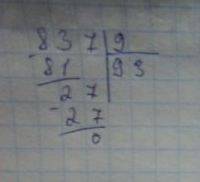 837 9
- 81 93
27
- 27
0